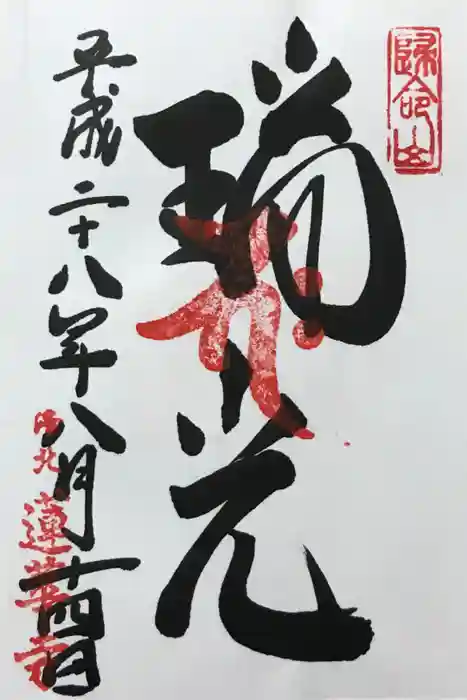 歸命山
瑞光
平成二十八年八月十四日
蓮華寺